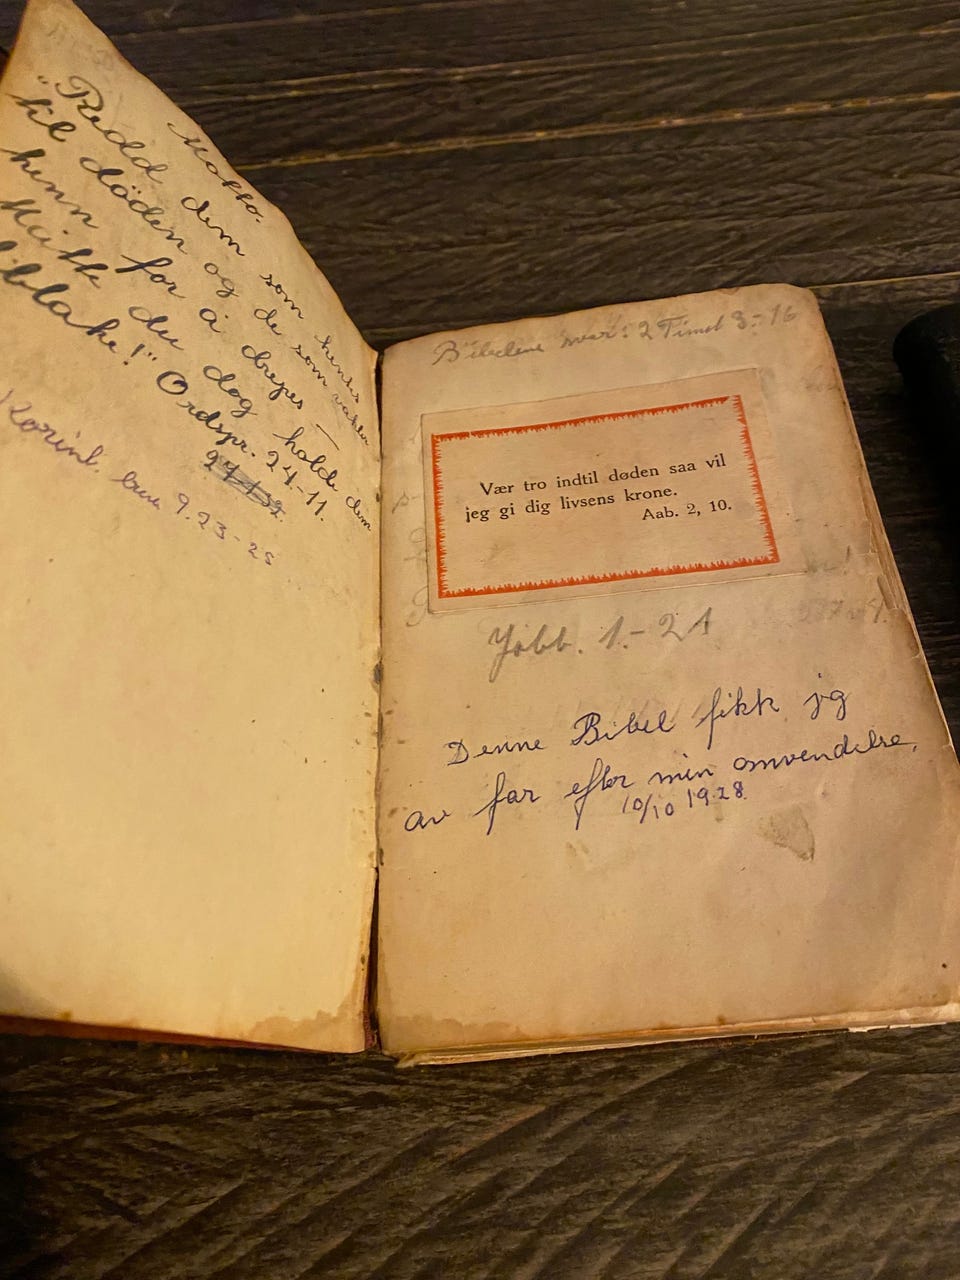 Motto.
"Redd dem som hentes
til døden og de som vakler
henn for å drepes –
Måtte du dog holde dem
tilbake!" Ordspr. 24-11.
Korint. brev 9.23-25
2 Timot 3:-16
Vær tro indtil døden saa vil
jeg gi dig livsens krone.
Aab. 2, 10.
1.-21
Denne Bibel fikk jeg
av far efter min omvendelse,
10/10 1928.